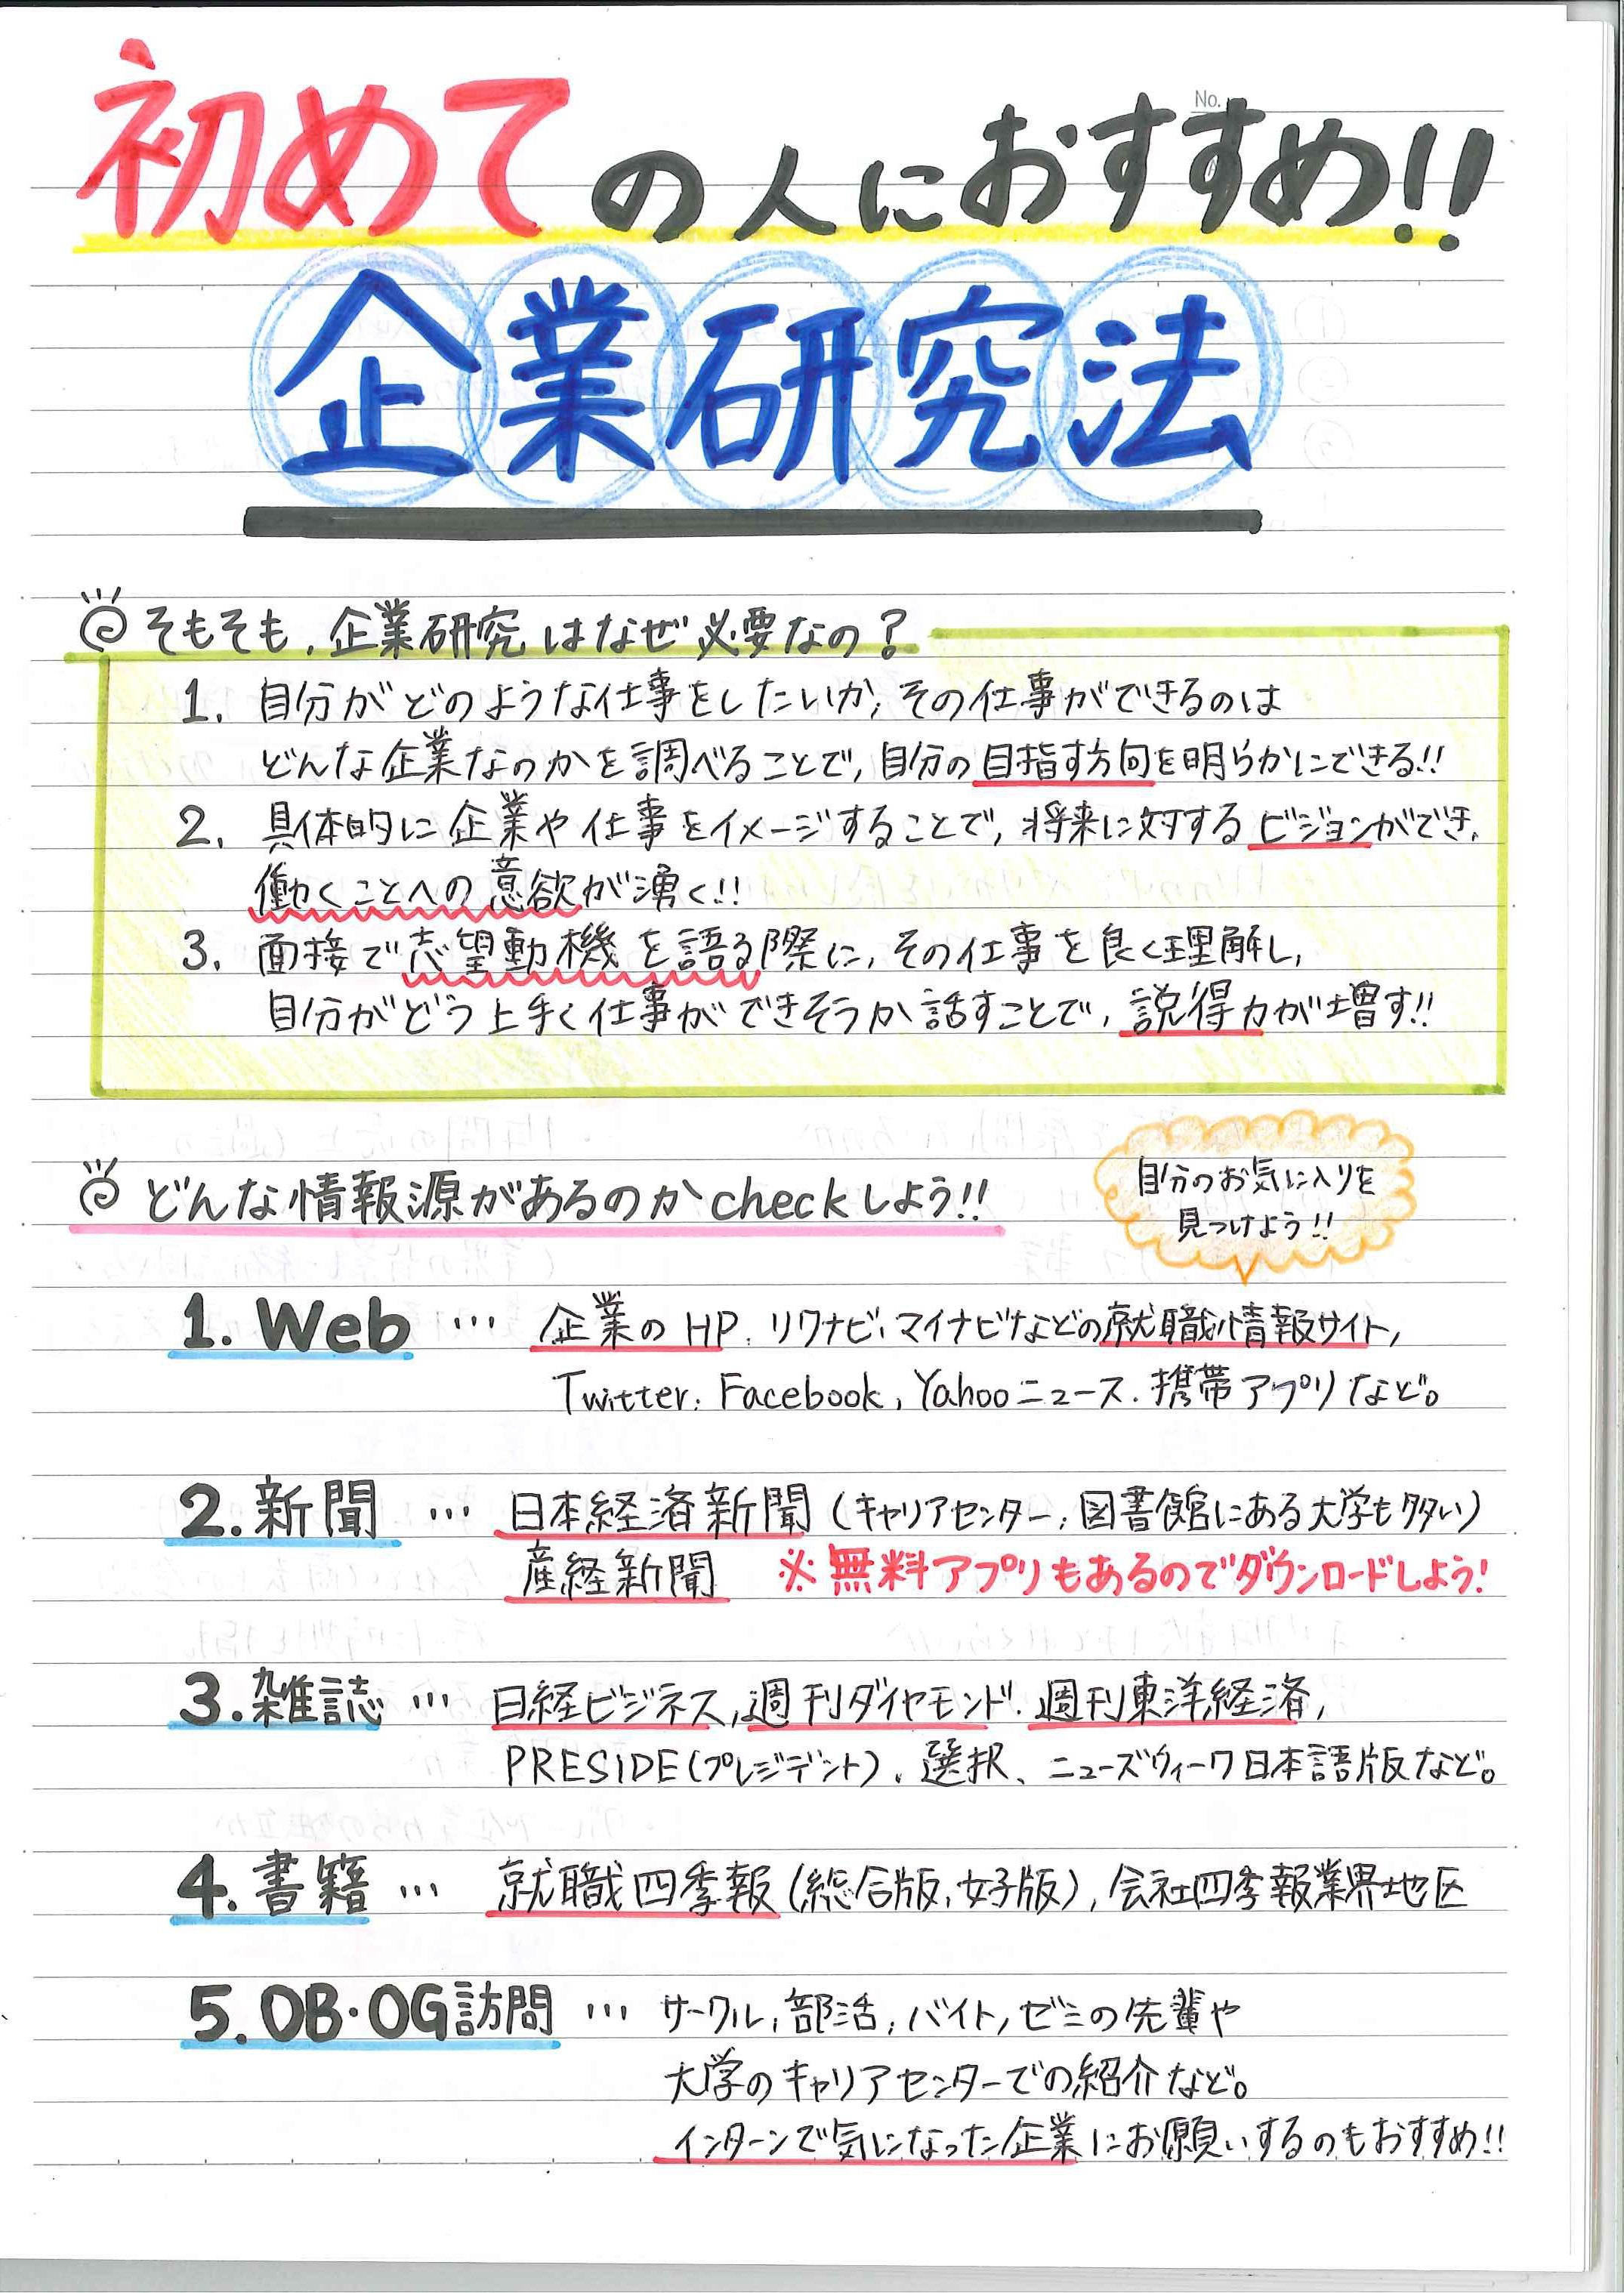 No.
初めての人におすすめ!!
企業研究法
そもそも、企業研究はなぜ必要なの?
1. 自分がどのような仕事をしたいか、その仕事ができるのは
どんな企業なのかを調べることで、自分の目指す方向を明らかにできる!!
2. 具体的に企業や仕事をイメージすることで、将来に対するビジョンができ、
働くことへの意欲が湧く!!
3. 面接で志望動機を語る際に、その仕事を良く理解し、
自分がどう上手く仕事ができそうか話すことで、説得力が増す!!
どんな情報源があるのかcheckしよう!!
自分のお気に入りを
見つけよう!!
1. Web … 企業のHP、リクナビ、マイナビなどの就職情報サイト、
Twitter、Facebook、Yahooニュース、携帯アプリなど。
2. 新聞 … 日本経済新聞(キャリアセンター、図書館にある大学も多い)
産経新聞 ※無料アプリもあるのでダウンロードしよう!
3. 雑誌 … 日経ビジネス、週刊ダイヤモンド、週刊東洋経済、
PRESIDE(プレジデント)、選択、ニューズウィーク日本語版など。
4. 書籍 … 就職四季報(総合版、女子版)、会社四季報業界地図
5. OB・OG訪問 … サークル、部活、バイト、ゼミの先輩や
大学のキャリアセンターでの紹介など。
インターンで気になった企業にお願いするのもおすすめ!!